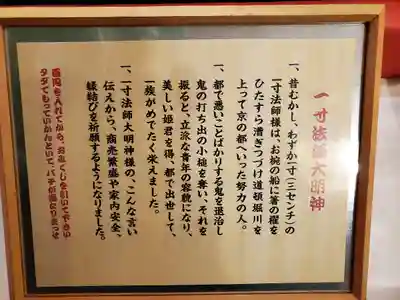 一寸法師大明神
一、昔むかし、わずか一寸(三センチ)の
一寸法師様は、お椀の船に箸の櫂を
ひたすら漕ぎつづけ道頓堀川を
上って京の都へいった努力の人。
一、都で悪いことばかりする鬼を退治し
鬼の打ち出の小槌を奪い、それを
振ると、立派な青年の容貌になり、
美しい姫君を得、都で出世して、
一族がめでたく栄えました。
一、一寸法師大明神様の、こんな言い
伝えから、商売繁盛や家内安全、
縁結びを祈願するようになりました。
百円を入れてから、おみくじを引いて下さい
タダでもっていかんといて、バチが当たりまっせ